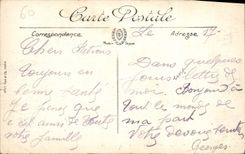 60
Carte Postale
Correspondance
Adresse
Le 17-
Chers
Toujours en
bonne santé
Je pense que
c'est ainsi de toute
votre famille
Dans quelques
jours lettre de
moi. Bonjour à
tout le monde de
ma part
Votre dévoué
Georges